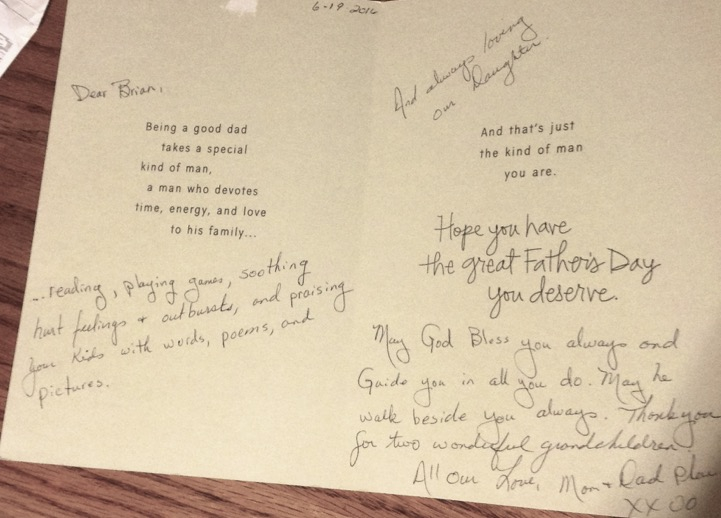 6-19 2016
Dear Brian,
Being a good dad
takes a special
kind of man,
a man who devotes
time, energy, and love
to his family...
...reading, playing games, soothing
hurt feelings + outbursts, and praising
your kids with words, poems, and
pictures.
And always loving
our Daughter.
And that's just
the kind of man
you are.
Hope you have
the great Father's Day
you deserve.
May God Bless you always and
Guide you in all you do. May he
walk beside you always. Thank you
for two wonderful grandchildren
All our Love, Mom + Dad
XX OO